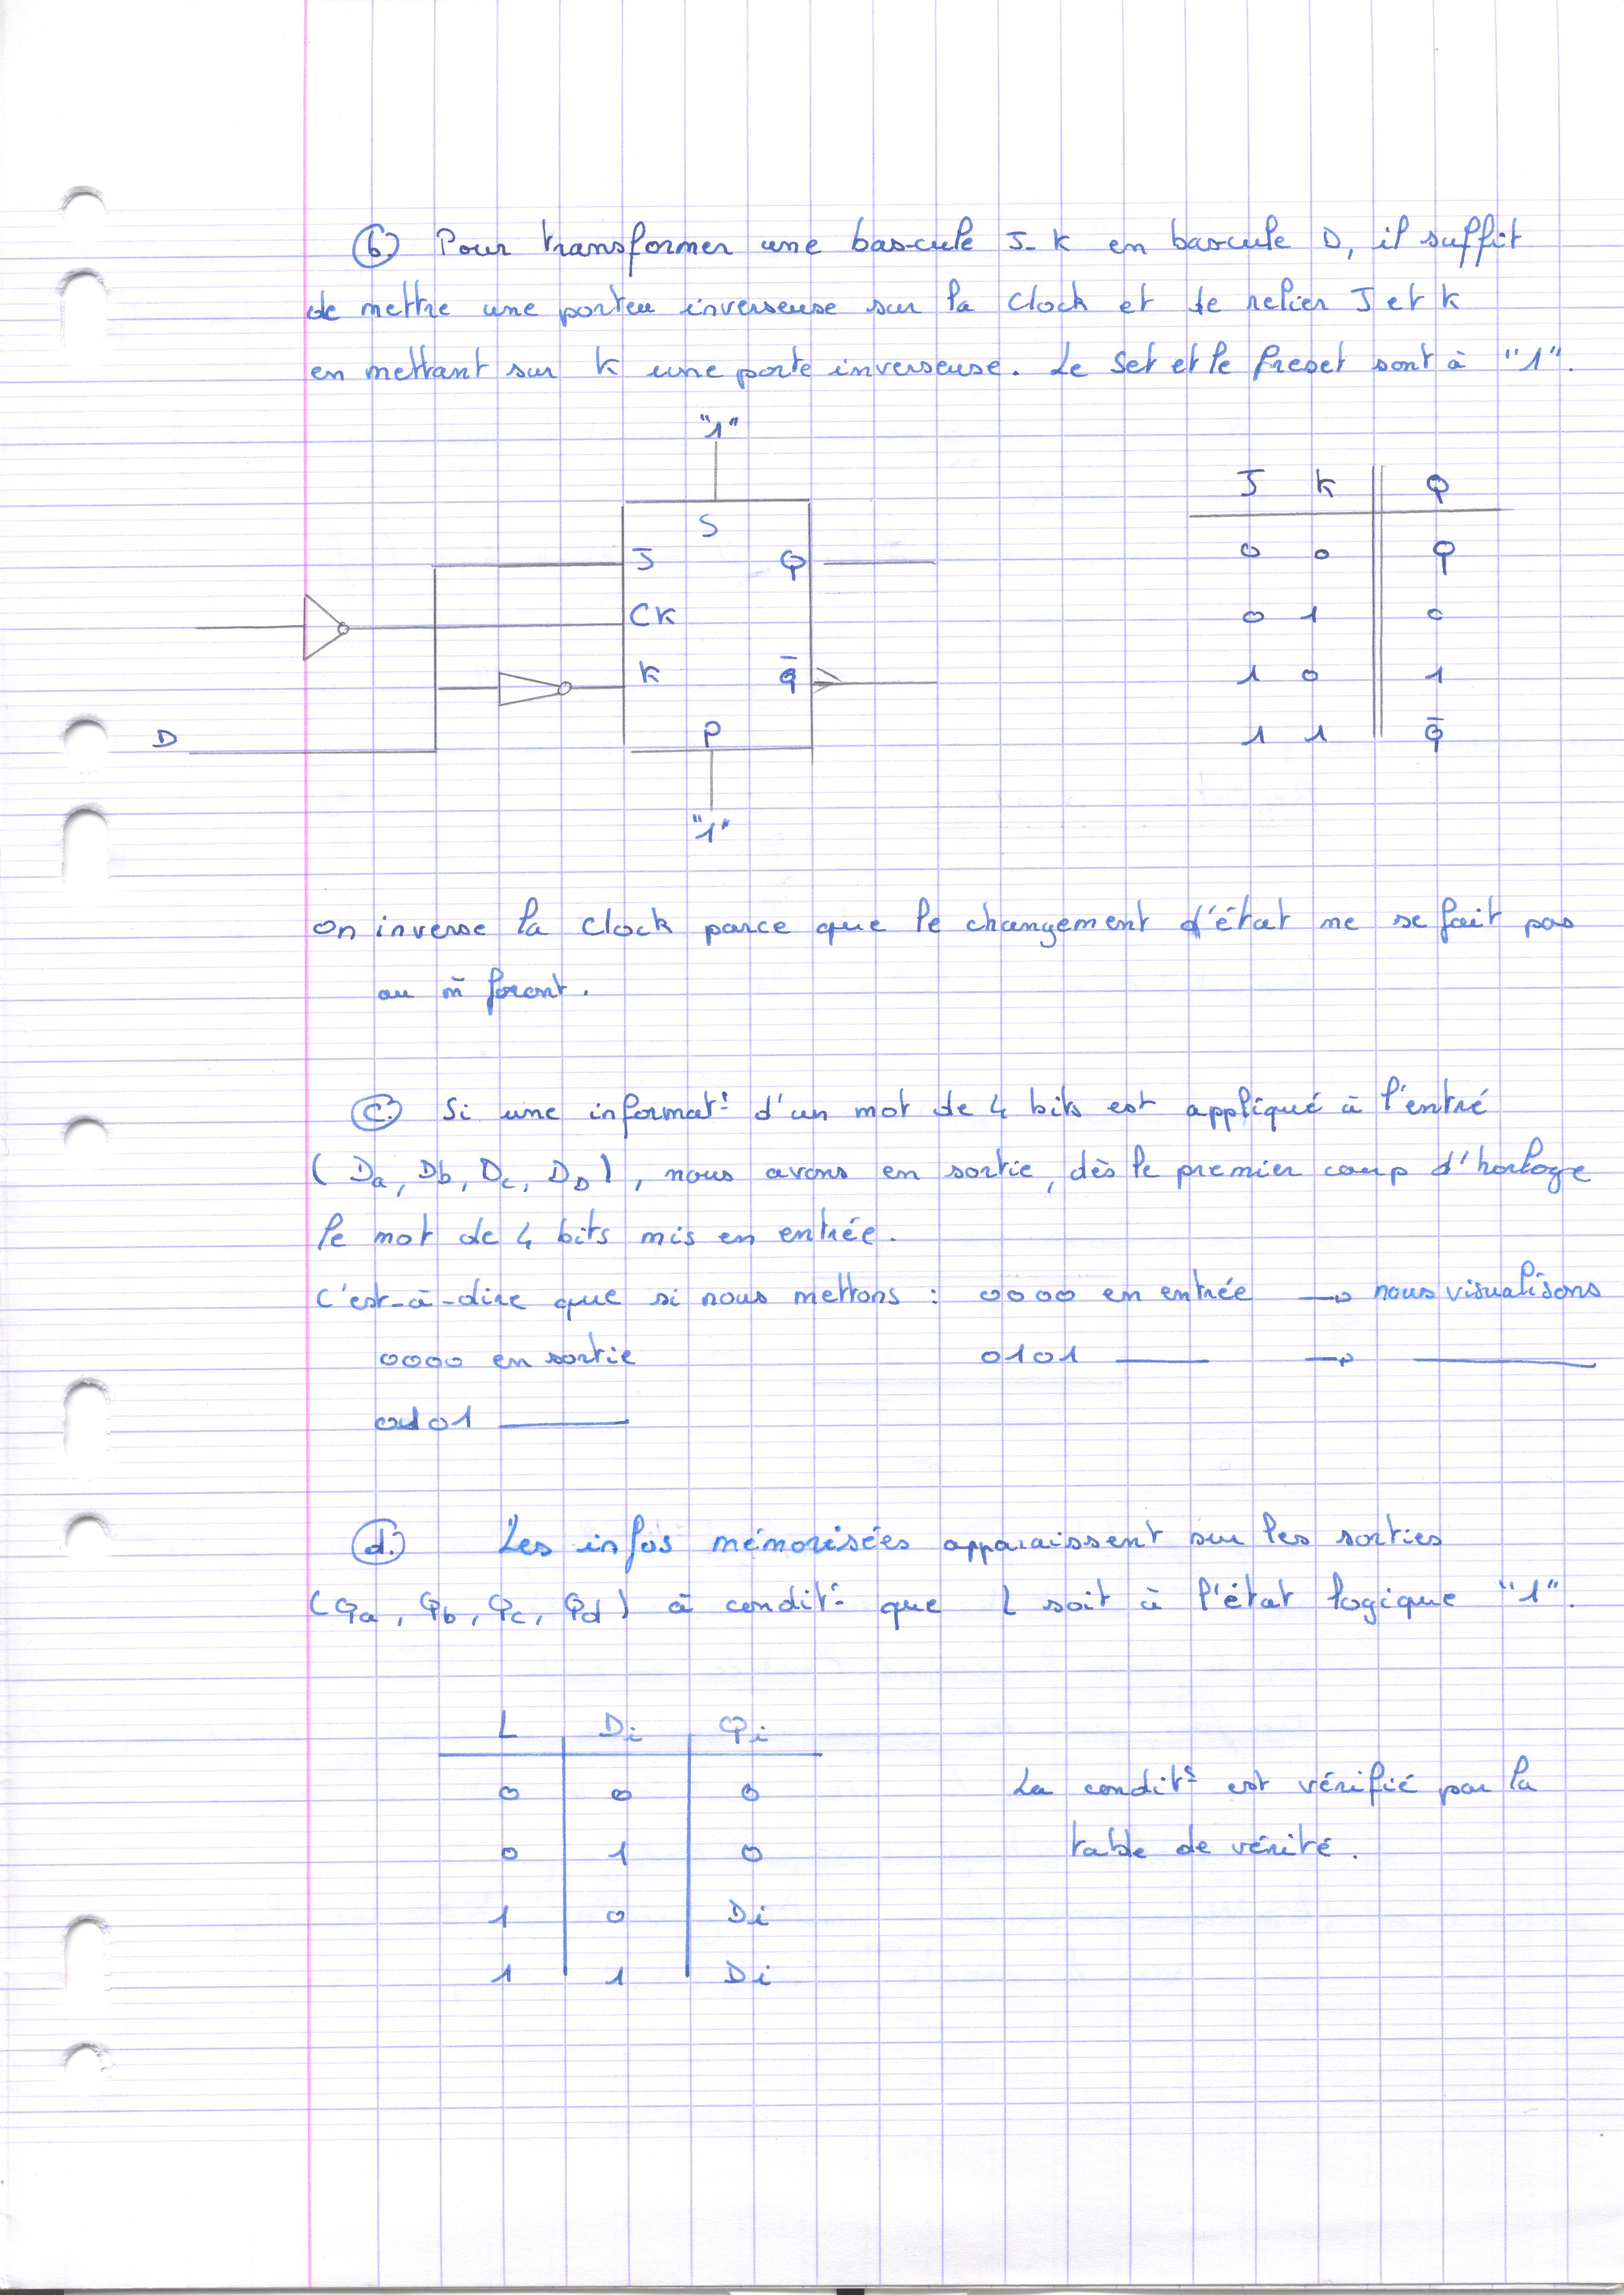 b) Pour transformer une bascule J-K en bascule D, il suffit
de mettre une porteu inverseuse sur la clock et de relier J et K
en mettant sur K une porte inverseuse. Le Set et le Preset sont à "1".
"1"
S
J Q
CK
K Q̄
P
D
"1"
J K Q
0 0 Q
0 1 0
1 0 1
1 1 Q̄
On inverse la clock parce que le changement d'état ne se fait pas
au m̄ foront.
c) Si une informat° d'un mot de 4 bits est appliqué à l'entré
(Da, Db, Dc, DD), nous avons en sortie, dès le premier coup d'horloge
le mot de 4 bits mis en entrée.
C'est-à-dire que si nous mettons : 0000 en entrée → nous visualisons
0000 en sortie 0101 —— → ——
0101 ——
d) Les infos mémorisées apparaissent sur les sorties
(Qa, Qb, Qc, Qd) à condit° que L soit à l'état logique "1".
L Di Qi
0 0 0
0 1 0
1 0 Di
1 1 Di
La condit° est vérifié par la
table de vérité.